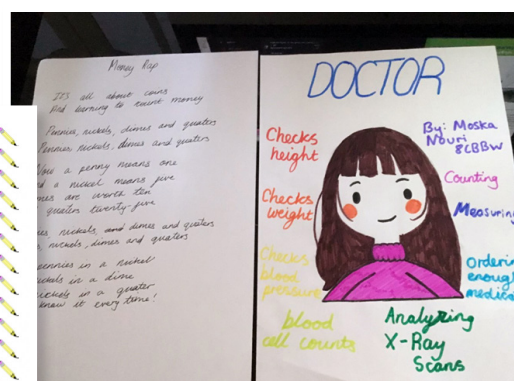 Money Rap
It's all about coins
And learning to count money
Pennies, nickels, dimes and quaters
Pennies nickels, dimes and quaters
a penny means one
a nickel means five
are worth ten
quaters twenty-five
nickels, and dimes and quaters
nickels, dimes and quaters
pennies in a nickel
in a dime
in a quater
know it every time!
DOCTOR
By: Moska
Nouri
8CBBW
Checks
height
Counting
Checks
weight
Measuring
Checks
blood
pressure
Ordering
enough
blood
cell counts
Analyzing
X-Ray
Scans